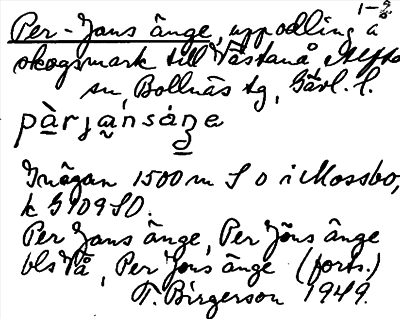 1-2
Per-Jans änge, uppodling å
skogsmark till Västanå Alfta
sn, Bollnäs tg, Gävl. l.
pàrjànsáṇe
Inägan 1500 m S o i Mossbo,
k G 109 SO.
Per Jans änge, Per Jöns änge
bls Vå, Per Jons änge (forts.)
T. Birgerson 1949.